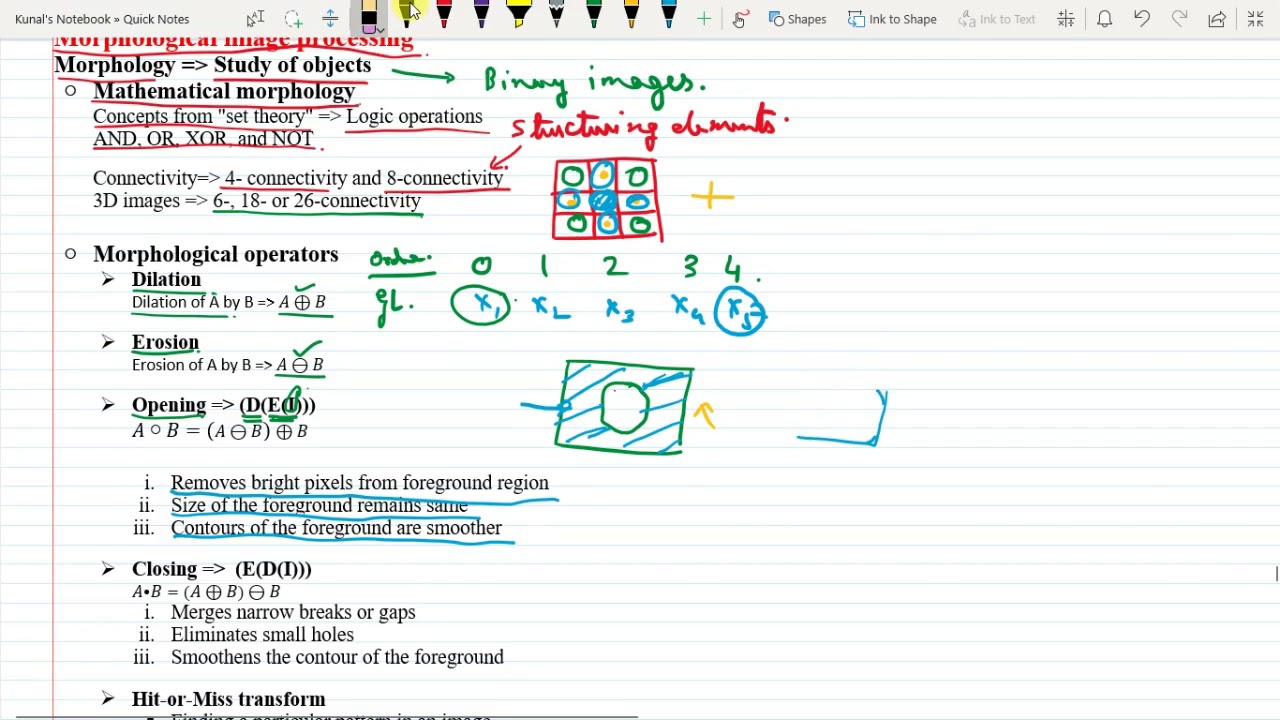 Kunal's Notebook » Quick Notes
Shapes
Ink to Shape
Ink to Text
Morphological image processing
Morphology => Study of objects
Binary images.
○ Mathematical morphology
Concepts from "set theory" => Logic operations
AND, OR, XOR, and NOT
structuring elements.
Connectivity=> 4- connectivity and 8-connectivity
3D images => 6-, 18- or 26-connectivity
○ Morphological operators
Order. 0 1 2 3 4.
➤ Dilation
Dilation of A by B => A ⊕ B
GL. x₁ x₂ x₃ x₄ x₅
➤ Erosion
Erosion of A by B => A ⊖ B
➤ Opening => (D(E(I)))
A ∘ B = (A ⊖ B) ⊕ B
i. Removes bright pixels from foreground region
ii. Size of the foreground remains same
iii. Contours of the foreground are smoother
➤ Closing => (E(D(I)))
A•B = (A ⊕ B) ⊖ B
i. Merges narrow breaks or gaps
ii. Eliminates small holes
iii. Smoothens the contour of the foreground
➤ Hit-or-Miss transform
Finding a particular pattern in an image